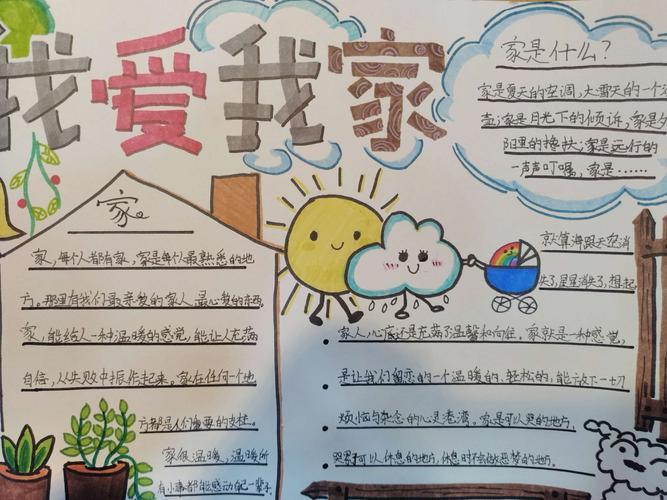 我爱我家
家是什么?
家是夏天的空调,大雪天的一个
壶;家是月光下的倾诉,家是夕
阳里的搀扶;家是远行的
一声声叮嘱,家是……
家
家,每个人都有家,家是每个人最熟悉的地
方。那里有我们最亲爱的家人,最心爱的东西。
家,能给人一种温暖的感觉,能让人充满
自信,从失败中振作起来。家在任何一个地
方都是人们重要的支柱。
家很温暖,温暖所
有小事都能感动你一辈子。
就算海跟天空消
失了,星星消失了,想起
家人,心底还是充满了温馨和向往。家就是一种感觉,
是让我们留恋的一个温暖的、轻松的,能放下一切
烦恼与杂念的心灵港湾。家是可以哭的地方,
累可以休息的地方,休息时不会做恶梦的地方。